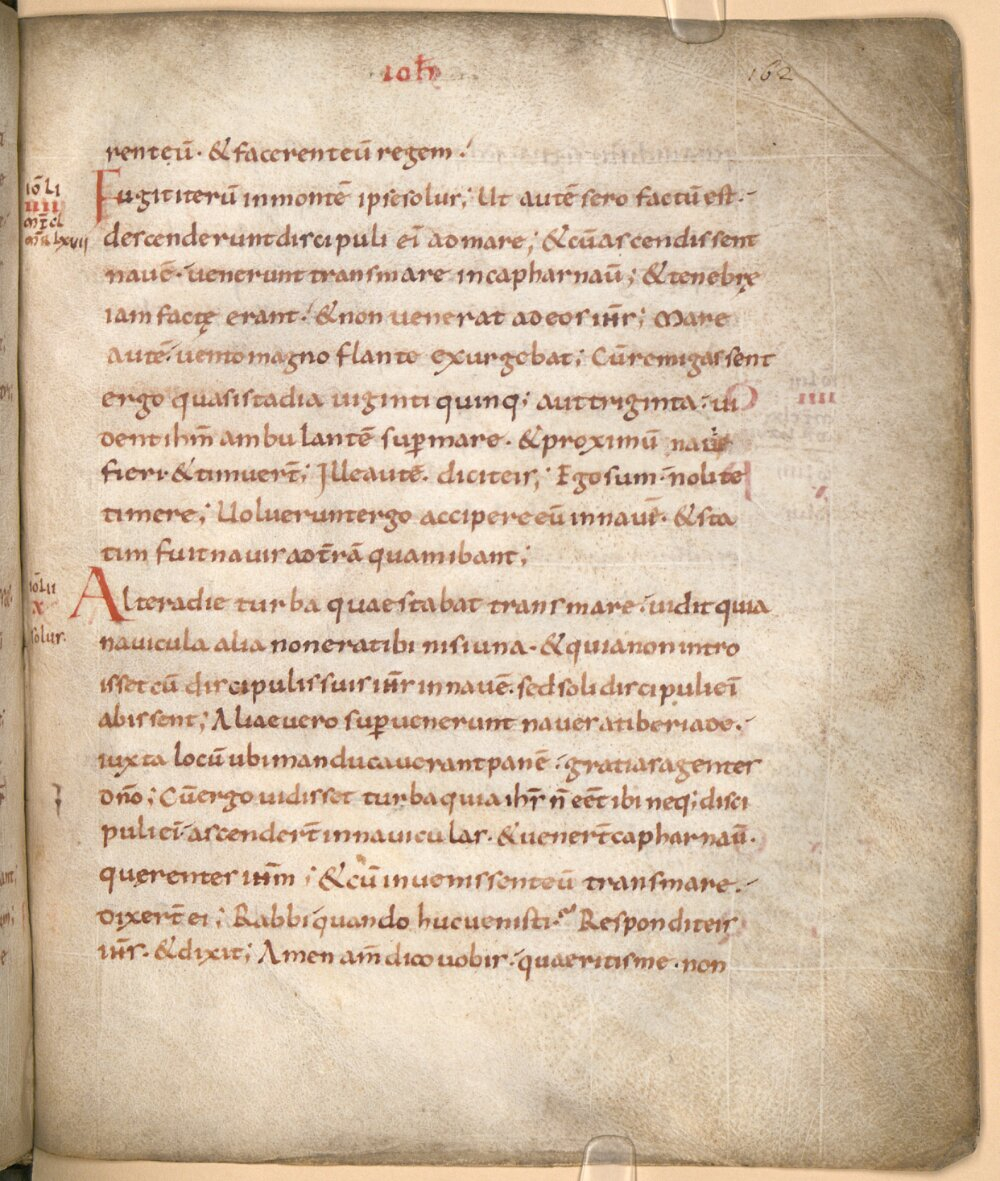 ioħ
162
rent eū· & facerent eū regem·
Fugit iterū in montē ipse solus; Ut autē sero factū est·
descenderunt discipuli ei᷒ ad mare; & cū ascendissent
navē· venerunt trans mare in capharnaū; & tenebrę
iam factę erant· & non venerat ad eos ih̄s; Mare
autē vento magno flante exurgebat; Cū remigassent
ergo quasi stadia viginti quinq; aut triginta· vi
dent ihm̄ ambulantē sup mare· & proximū navis
fieri· & timuer̄t; Ille autē· dicit eis; Ego sum· nolite
timere; Voluerunt ergo accipere eū in navē· & sta
tim fuit navis ad t̄rā quam ibant;
Altera die turba quae stabat trans mare· vidit quia
navicula alia non erat ibi nisi una· & quia non intro
isset cū discipulis suis ih̄s in navē· sed soli discipuli ei᷒
abissent; Aliae vero sup venerunt naves a tiberiade·
iuxta locū ubi manducaverant panē· gratias agentes
dn̄o; Cū ergo vidisset turba quia ih̄s n̄ eēt ibi neq; disci
puli ei᷒ ascender̄t in naviculas· & vener̄t capharnaū·
querentes ihm̄; & cū invenissent eū trans mare·
dixer̄t ei; Rabbi quando huc venisti· Respondit eis
ih̄s· & dixit; Amen am̄ dico vobis· quaeritis me· non
iō LI
IIII
mr̄ cl
mt̄ LXVII
iō LII
X
solus·